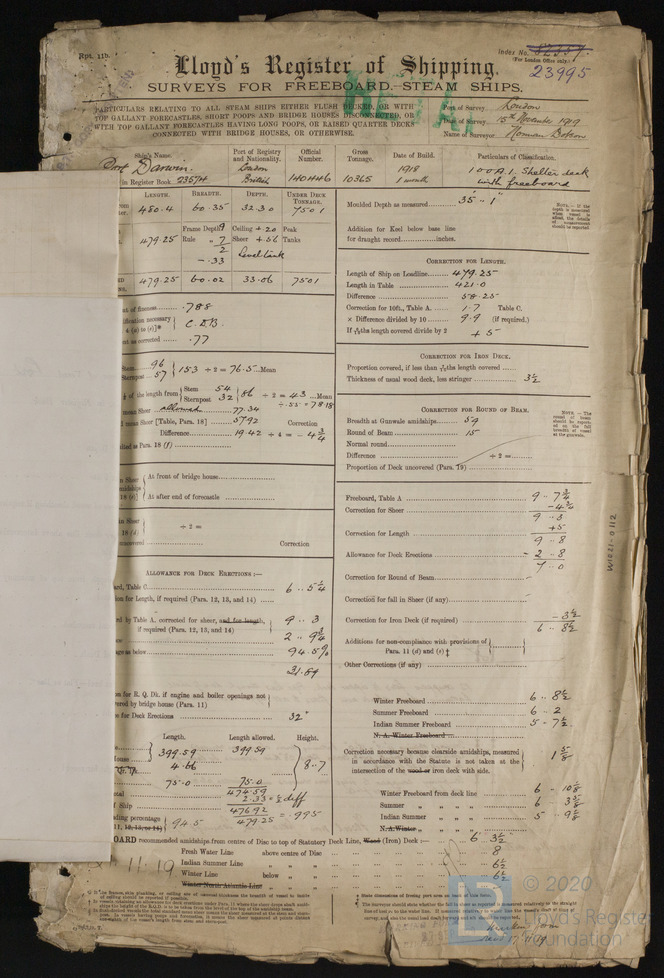 Rpt. 11b.
Index No. 52357.
(For London Office only.)
23995
Lloyd's Register of Shipping.
SURVEYS FOR FREEBOARD.—STEAM SHIPS.
PARTICULARS RELATING TO ALL STEAM SHIPS EITHER FLUSH DECKED, OR WITH
TOP GALLANT FORECASTLES, SHORT POOPS AND BRIDGE HOUSES DISCONNECTED, OR
WITH TOP GALLANT FORECASTLES HAVING LONG POOPS, OR RAISED QUARTER DECKS
CONNECTED WITH BRIDGE HOUSES, OR OTHERWISE.
Port of Survey London
Date of Survey 15th November 1919
Name of Surveyor Norman Dobson
Ship's Name. Port of Registry and Nationality. Official Number. Gross Tonnage. Date of Build. Particulars of Classification.
Port Darwin. London British 140446 10365 1918 1 month 100 A.1. Shelter deck with freeboard
in Register Book 23574
LENGTH. BREADTH. DEPTH. UNDER DECK TONNAGE.
480.4 60.35 32.30 7501
479.25 Frame Depth 9 Ceiling + .20 Peak
Rule „ 7 Sheer + .56 Tanks
2
- .33 Level tank
479.25 60.02 33.06 7501
Moulded Depth as measured 35 .. 1"
Addition for Keel below base line
for draught record inches.
CORRECTION FOR LENGTH.
Length of Ship on Loadline 479.25
Length in Table 421.0
Difference 58.25
Correction for 10ft., Table A. 1.7 Table C.
× Difference divided by 10 9.9 (if required.)
length covered divide by 2 + 5
of fineness .788
C.D.B.
as corrected .77
Stem 96
Sternpost 57 } 153 ÷ 2 = 76.5 Mean
of the length from { Stem 54
Sternpost 32 } 86 ÷ 2 = 43 Mean
÷ .55 = 78.18
mean Sheer allowed 77.34
mean Sheer [Table, Para. 18] 57.92 Correction
Difference 19.42 ÷ 4 = - 4¾
as Para. 18 (f)
At front of bridge house
At after end of forecastle
÷ 2 =
Correction
CORRECTION FOR IRON DECK.
Proportion covered, if less than length covered
Thickness of usual wood deck, less stringer 3½
CORRECTION FOR ROUND OF BEAM.
Breadth at Gunwale amidships 59
Round of Beam 15"
Normal round
Difference ÷ 2 =
Proportion of Deck uncovered (Para. 19)
Freeboard, Table A 9 .. 7¾
Correction for Sheer - 4¾
9 .. 3
Correction for Length + 5
9 .. 8
Allowance for Deck Erections - 2 .. 8
7 .. 0
Correction for Round of Beam
Correction for fall in Sheer (if any)
Correction for Iron Deck (if required) - 3½
6 .. 8½
Additions for non-compliance with provisions of
Para. 11 (d) and (e) ‡
Other Corrections (if any)
ALLOWANCE FOR DECK ERECTIONS :—
Table C. 6 .. 5¼
for Length, if required (Para. 12, 13, and 14)
by Table A, corrected for sheer, and for length, 9 .. 3
if required (Para. 12, 13, and 14)
2 .. 9¾
as below 94.5%
31.89
for R. Q. Dk. if engine and boiler openings not
covered by bridge house (Para. 11)
for Deck Erections 32"
Length. Length allowed. Height.
399.59 399.59
4.66 8..7
75.0 75.0
474.59
2.33 = ½ diff
of Ship 476.92
479.25 = .995
percentage 94.5
11, 12, 13, or 14)
Winter Freeboard 6 .. 8½
Summer Freeboard 6 .. 2
Indian Summer Freeboard 5 - 7½
N. A. Winter Freeboard
Correction necessary because clearside amidships, measured
in accordance with the Statute is not taken at the
intersection of the wood or iron deck with side. 1⅝
Winter Freeboard from deck line 6 - 10⅛
Summer „ „ „ „ 6 3⅝
Indian Summer „ „ 5 - 9⅛
N.A. Winter „ „
recommended amidships from centre of Disc to top of Statutory Deck Line, Wood (Iron) Deck :— 6 3½
Fresh Water Line above centre of Disc 8
Indian Summer Line „ „ 6½
Winter Line below „ 6½
Winter North Atlantic Line „ „
11.19
W1021-0112
© 2020
Lloyd's Register
Foundation